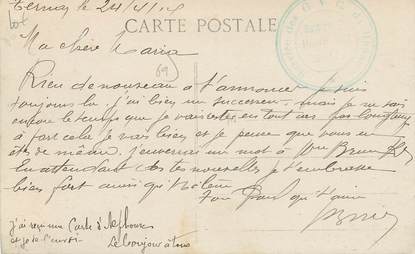 Ternay le 24/
CARTE POSTALE
Ma chère Maria
69
Rien de nouveau à t'annoncer je suis
toujours là. j'ai bien un successeur mais je ne sais
encore le temps que je vais rester en tout cas pas longtemps
à part cela je vais bien et je pense que vous en
êtes de même. j'enverrai un mot à
En attendant de tes nouvelles je t'embrasse
bien fort ainsi qu'Hélène
Ton Paul qui t'aime
j'ai reçu une Carte d'Alphonse
et je te l'envoi
Le bonjour à tous